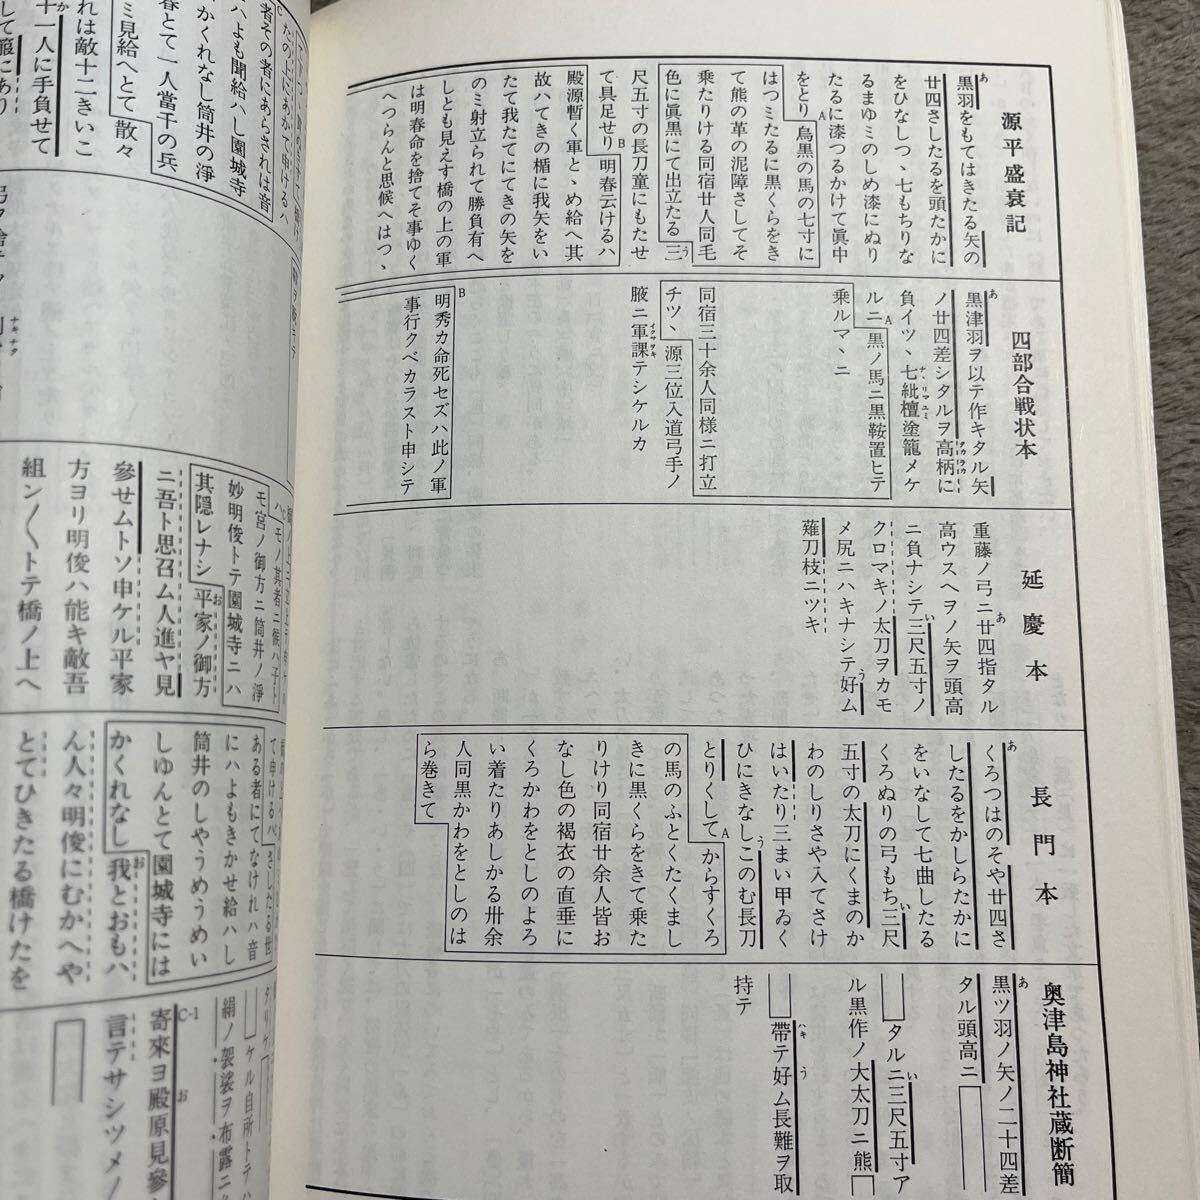 源平盛衰記
黒羽をもてはきたる矢の
廿四さしたるを頭たかに
をひなしつゝ七もちりな
るまゆミのしめ漆にぬり
たるに漆つるかけて眞中
をとり烏黒の馬の七寸に
はつミたるに黒くらをき
て熊の革の泥障さしてそ
乗たりける同宿廿人同毛
色に眞黒にて出立たる三
尺五寸の長刀童にもたせ
て具足せり明春云けるハ
殿源暫く軍とゝめ給へ其
故ハてきの楯に我矢をい
たて我たてにてきの矢を
のミ射立られて勝負有へ
しとも見えす橋の上の軍
は明春命を捨てそ事ゆく
へつらんと思候へはつゝ
四部合戦状本
黒津羽ヲ以テ作キタル矢
ノ廿四差シタルヲ高柄に
負イツヽ七紕檀塗籠メケ
ルニ黒ノ馬ニ黒鞍置ヒテ
乗ルマヽニ
同宿三十余人同様ニ打立
チツヽ源三位入道弓手ノ
腋ニ軍課テシケルカ
明秀カ命死セズハ此ノ軍
事行クベカラスト申シテ
延慶本
重藤ノ弓ニ廿四指タル
高ウスヘヲノ矢ヲ頭高
ニ負ナシテ三尺五寸ノ
クロマキノ太刀ヲカモ
メ尻ニハキナシテ好ム
薙刀枝ニツキ
長門本
くろつはのそや廿四さ
したるをかしらたかに
をいなして七曲したる
くろぬりの弓もち三尺
五寸の太刀にくまのか
わのしりさや入てさけ
はいたり三まい甲ゐく
ひにきなしこのむ長刀
とりくしてからすくろ
の馬のふとくたくまし
きに黒くらをきて乗た
りけり同宿廿余人皆お
なし色の褐衣の直垂に
くろかわをとしのよろ
い着たりあしかる卅余
人同黒かわをとしのは
ら巻きて
奥津島神社蔵断簡
黒ツ羽ノ矢ノ二十四差
タル頭高ニ
タルニ三尺五寸ア
ル黒作ノ大太刀ニ熊
帶テ好ム長難ヲ取
持テ
たの上にあかて申けるハ
者その者にあらされは音
ハよも聞給ハし園城寺
かくれなし筒井の淨
春とて一人當千の兵
ミ見給へとて散々
れは敵十二きいこ
十一人に手負せて
して箙にあり
モノ其者ニ候ハ子ト
モ宮ノ御方ニ筒井ノ淨
妙明俊トテ園城寺ニハ
其隠レナシ平家ノ御方
ニ吾ト思召ム人進ヤ見
參せムトソ申ケル平家
方ヨリ明俊ハ能キ敵吾
組ン〳〵トテ橋ノ上へ
て申けるハさしたる世
ある者にてなけれハ音
にハよもきかせ給ハし
筒井のしやうめうめい
しゆんとて園城寺には
かくれなし我とおもハ
ん人々明俊にむかへや
とてひきたる橋けたを
ケル自所トテハ
絹ノ袈裟ヲ布露ニ
寄來ヨ殿原見參
言テサシツメ